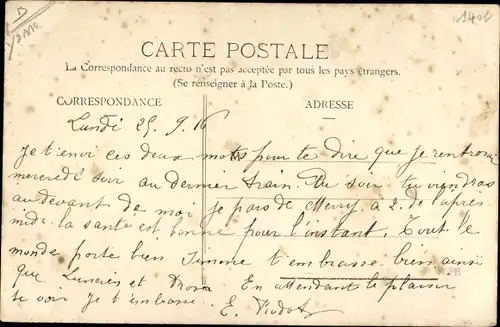 D
Yonne
1406
CARTE POSTALE
La Correspondance au recto n'est pas acceptée par tous les pays étrangers.
(Se renseigner à la Poste.)
CORRESPONDANCE
ADRESSE
Lundi 25. 9. 16
Je t'envi ces deux mots pour te dire que je rentrerai
mercredi soir au dernier train. Du soir tu viendras
au devant de moi je pars de Merry à 2. de l'après
midi. la santé est bonne pour l'instant. Tout le
monde porte bien Simone t'embrasse bien ainsi
que Lucien et En attendant le plaisir
te voir Je t'embrasse. E.